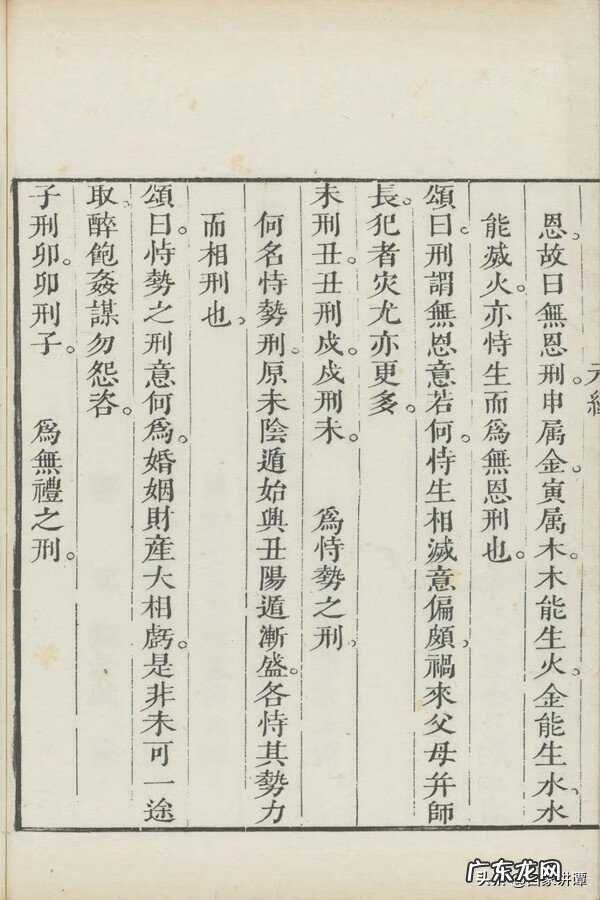 恩。故曰無恩刑。申属金。寅属木。木能生火。金能生水。水
能滅火。亦恃生而爲無恩刑也。
頌曰。刑謂無恩意若何。恃生相滅意偏頗。禍來父母并師
長。犯者灾尤亦更多。
未刑丑。丑刑戍。戍刑未。 爲恃勢之刑。
何名恃勢刑。原未陰遁始與丑陽遁漸盛。各恃其勢力
而相刑也。
頌曰。恃勢之刑意何爲。婚姻財産大相虧。是非未可一途
取。醉飽姦謀勿怨咨。
子刑卯。卯刑子。 爲無禮之刑。
广东龙网